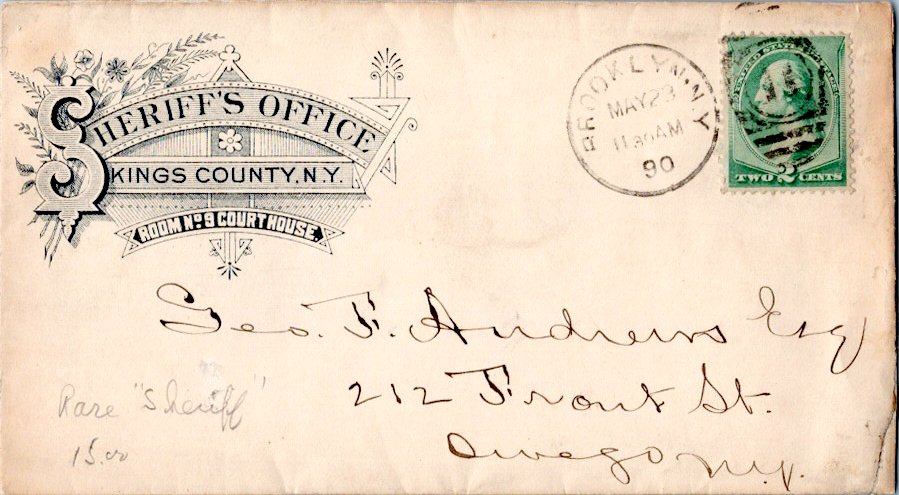 SHERIFF'S OFFICE
KINGS COUNTY, N.Y.
ROOM No 9 COURT HOUSE.
BROOKLYN, N.Y.
MAY 23
11 30 AM
90
UNITED STATES
TWO 2 CENTS
Geo. F. Andrews Esq
212 Front St.
Owego N.Y.
Rare "Sheriff"
15.00